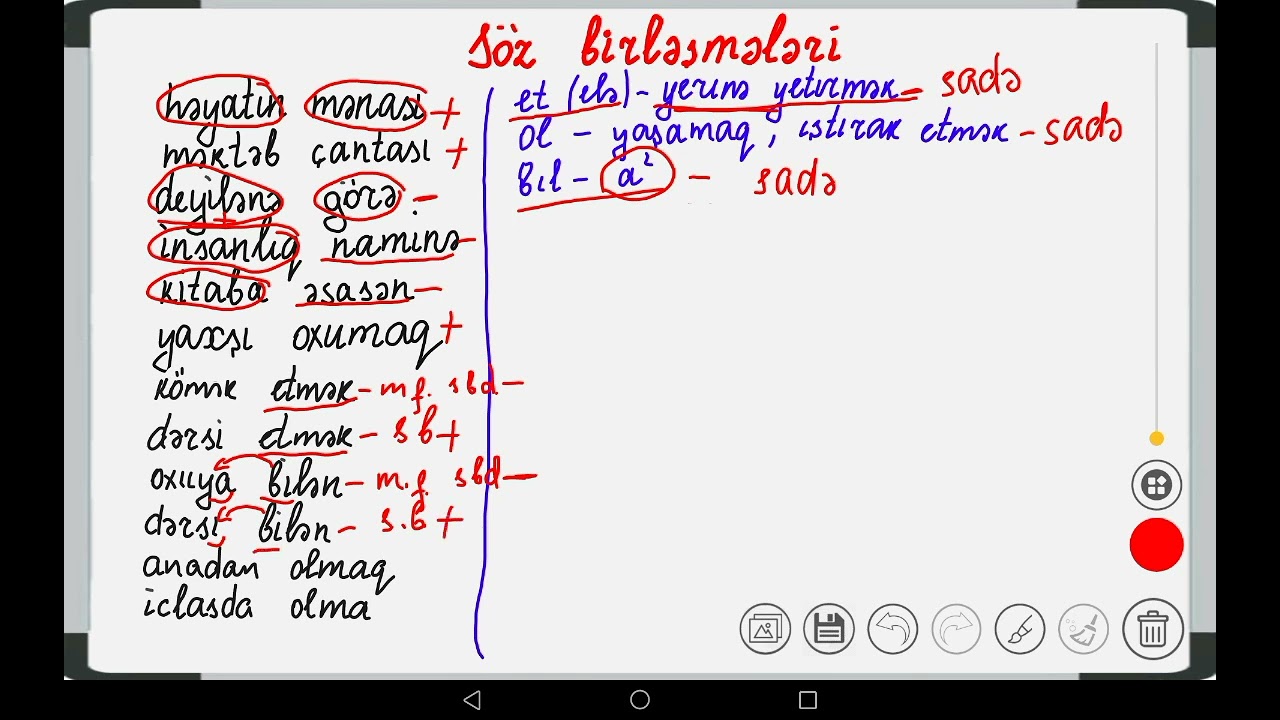 söz birləşmələri
həyatın mənası +
məktəb çantası +
deyilənə görə -
insanlıq naminə -
kitaba əsasən -
yaxşı oxumaq +
kömək etmək - m f. sbd -
dərsi etmək - sb +
oxuya bilən - m.f. sbd -
dərsi bilən - s.b +
anadan olmaq
iclasda olma
et (elə) - yerinə yetirmək - sadə
ol - yaşamaq, iştirak etmək - sadə
bil - a² - sadə